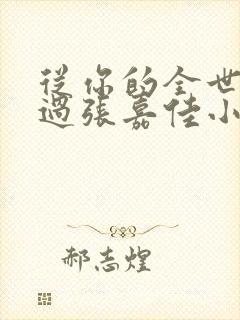 從你的全世
過張嘉佳小
郝志煌